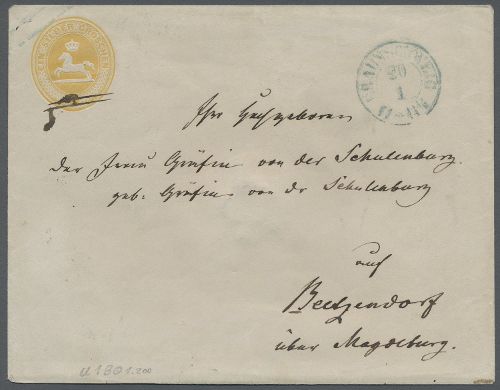 EIN SILBER GROSCHEN
BRAUNSCHWEIG
20
1
Ihr Hochgeboren
der Frau Gräfin von der Schulenburg.
geb. Gräfin von dr Schulenburg
auf
Beetzendorf
über Magdeburg.